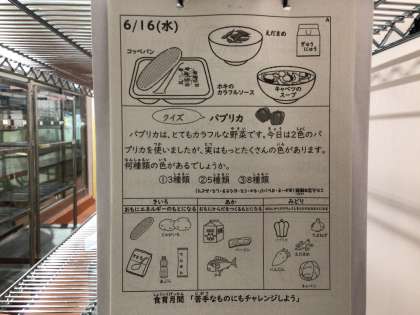 6/16(水)
A
えだまめ
ぎゅうにゅう
コッペパン
ホキの
カラフルソース
キャベツの
スープ
クイズ パプリカ
パプリカは、とてもカラフルな野菜です。今日は2色のパ
プリカを使いましたが、実はもっとたくさんの色があります。
何種類の色があるでしょうか。
①3種類 ②5種類 ③8種類
きいろ あか みどり
おもにエネルギーのもとになる おもにからだをつくるもとになる
じゃがいも
ベーコン
パプリカ
たまねぎ
えだまめ
にんじん
キャベツ
あぶら
食育月間 「苦手なものにもチャレンジしよう」